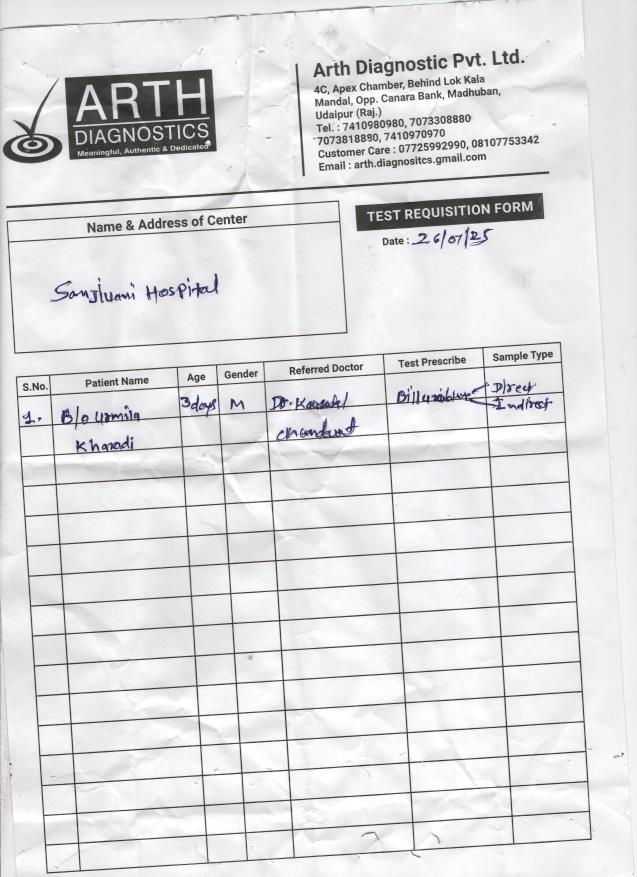 ARTH
DIAGNOSTICS
Meaningful, Authentic & Dedicated
Arth Diagnostic Pvt. Ltd.
4C, Apex Chamber, Behind Lok Kala
Mandal, Opp. Canara Bank, Madhuban,
Udaipur (Raj.)
Tel. : 7410980980, 7073308880
7073818880, 7410970970
Customer Care : 07725992990, 08107753342
Email : arth.diagnositcs.gmail.com
Name & Address of Center
TEST REQUISITION FORM
Date : 26/07/25
Sanjivani Hospital
S.No. Patient Name Age Gender Referred Doctor Test Prescribe Sample Type
1. B/o Urmila 3days M Dr. Direct
Indirect
Kharadi